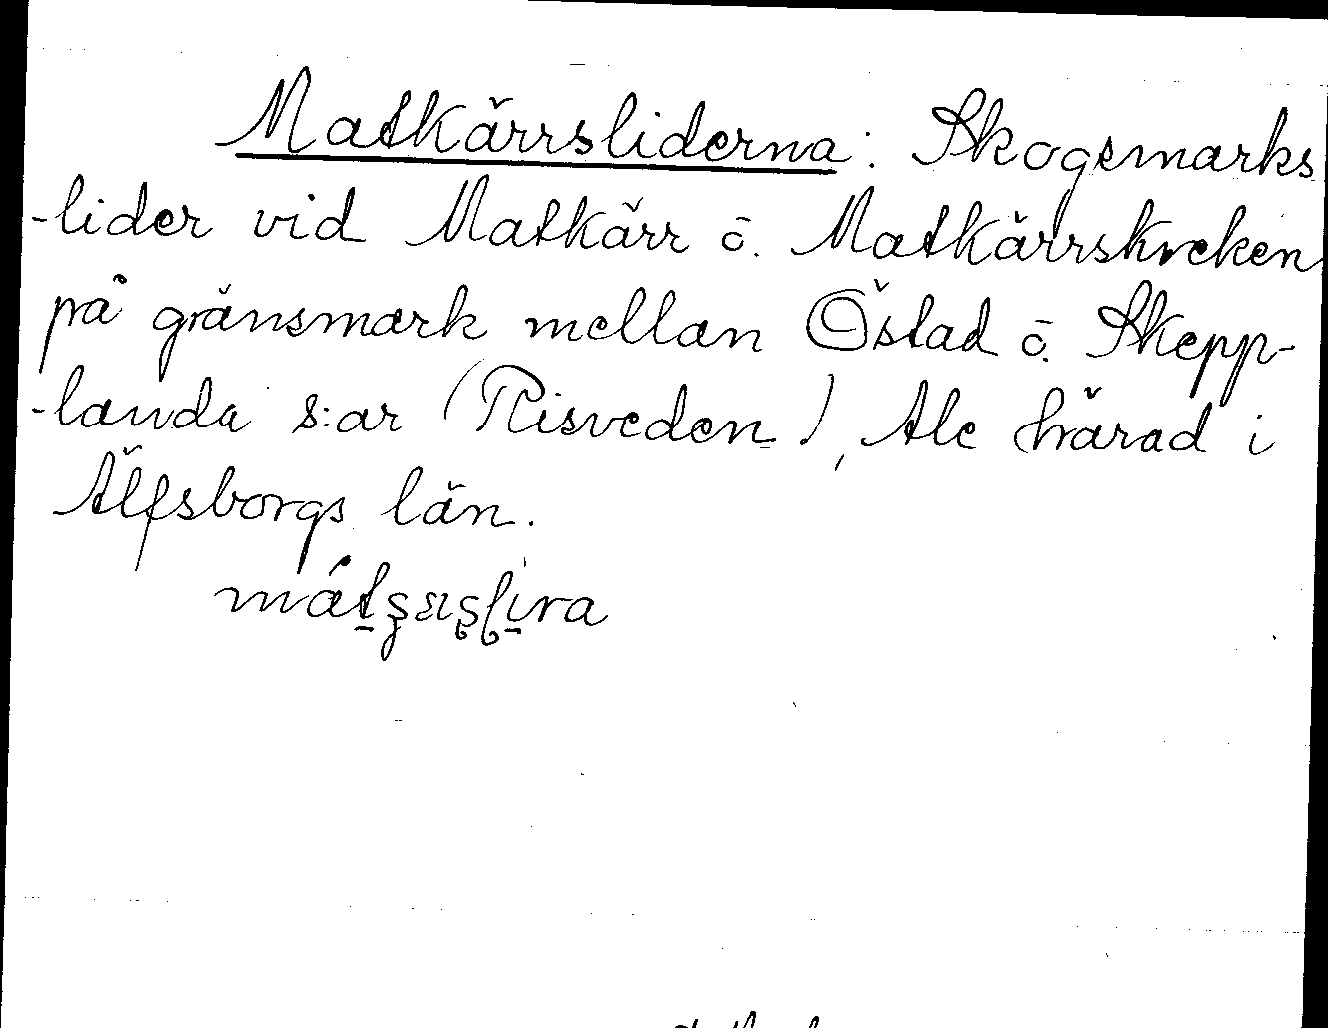 Matkärrsliderna: Skogsmarks
-lider vid Matkärr ō. Matkärrskreken
på gränsmark mellan Östad ō. Skepp-
-landa s:ar (Risveden), Ale härad i
Älfsborgs län.